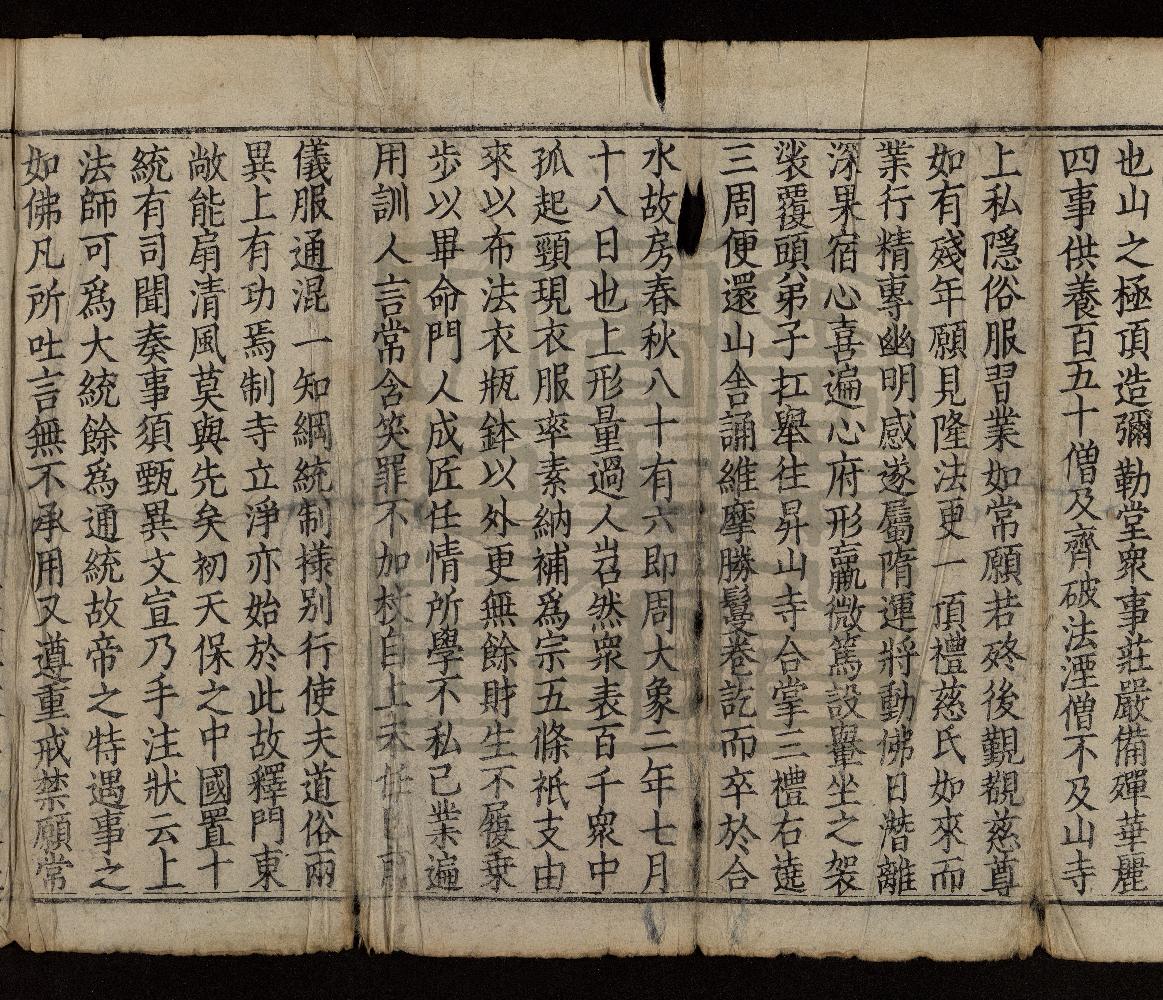 也山之極頂造彌勒堂衆事莊嚴備殫華麗
四事供養百五十僧及齊破法湮僧不及山寺
上私隱俗服習業如常願若終後覲覩慈尊
如有殘年願見隆法更一頂禮慈氏如來而
業行精專幽明感遂屬隋運將動佛日潛離
深果宿心喜遍心府形羸微篤設轝坐之袈
裟覆頭弟子扛舉往昇山寺合掌三禮右遶
三周便還山舍誦維摩勝鬘卷訖而卒於合
水故房春秋八十有六即周大象二年七月
十八日也上形量過人岧然衆表百千衆中
孤起頸現衣服率素納補爲宗五條祇支由
來以布法衣瓶鉢以外更無餘財生不履乘
步以畢命門人成匠任情所學不私已業遍
用訓人言常含笑罪不加杖自上未任已前
儀服通混一知綱統制樣別行使夫道俗兩
異上有功焉制寺立淨亦始於此故釋門東
敞能扇清風莫與先矣初天保之中國置十
統有司聞奏事須甄異文宣乃手注狀云上
法師可爲大統餘爲通統故帝之特遇事之
如佛凡所吐言無不承用又遵重戒禁願常